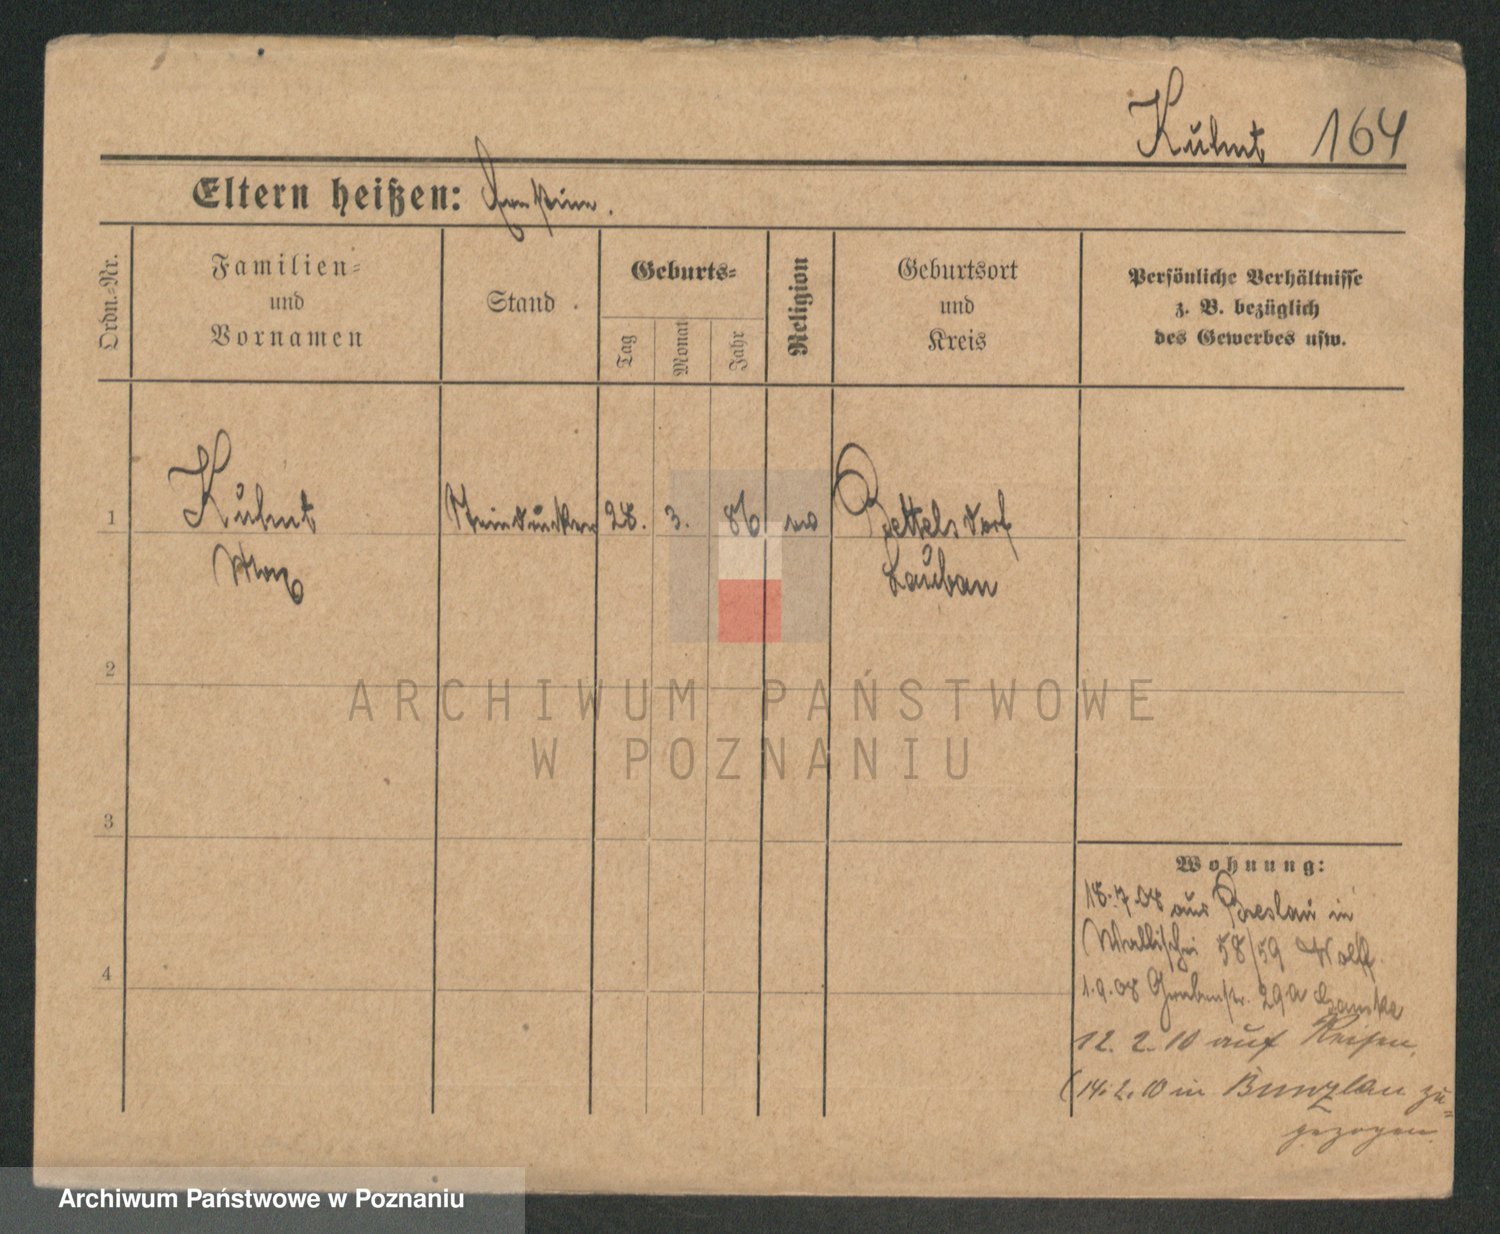 Kuhnt 164
Eltern heißen:
Ordn.-Nr.
Familien-
und
Vornamen
Stand
Geburts-
Tag
Monat
Jahr
Religion
Geburtsort
und
Kreis
Persönliche Verhältnisse
z. B. bezüglich
des Gewerbes usw.
1
Kuhnt
Max
Steindrucker
28.
3.
86
Bettelsdorf
Lauban
2
3
4
Wohnung:
18.7.08 aus Breslau in
Wallischei 58/59 Wolff
1.9.08 Grabenstr. 29a
12.2.10 auf Reisen.
(14.2.10 in Bunzlau zu-
gezogen.
ARCHIWUM PAŃSTWOWE
W POZNANIU
Archiwum Państwowe w Poznaniu